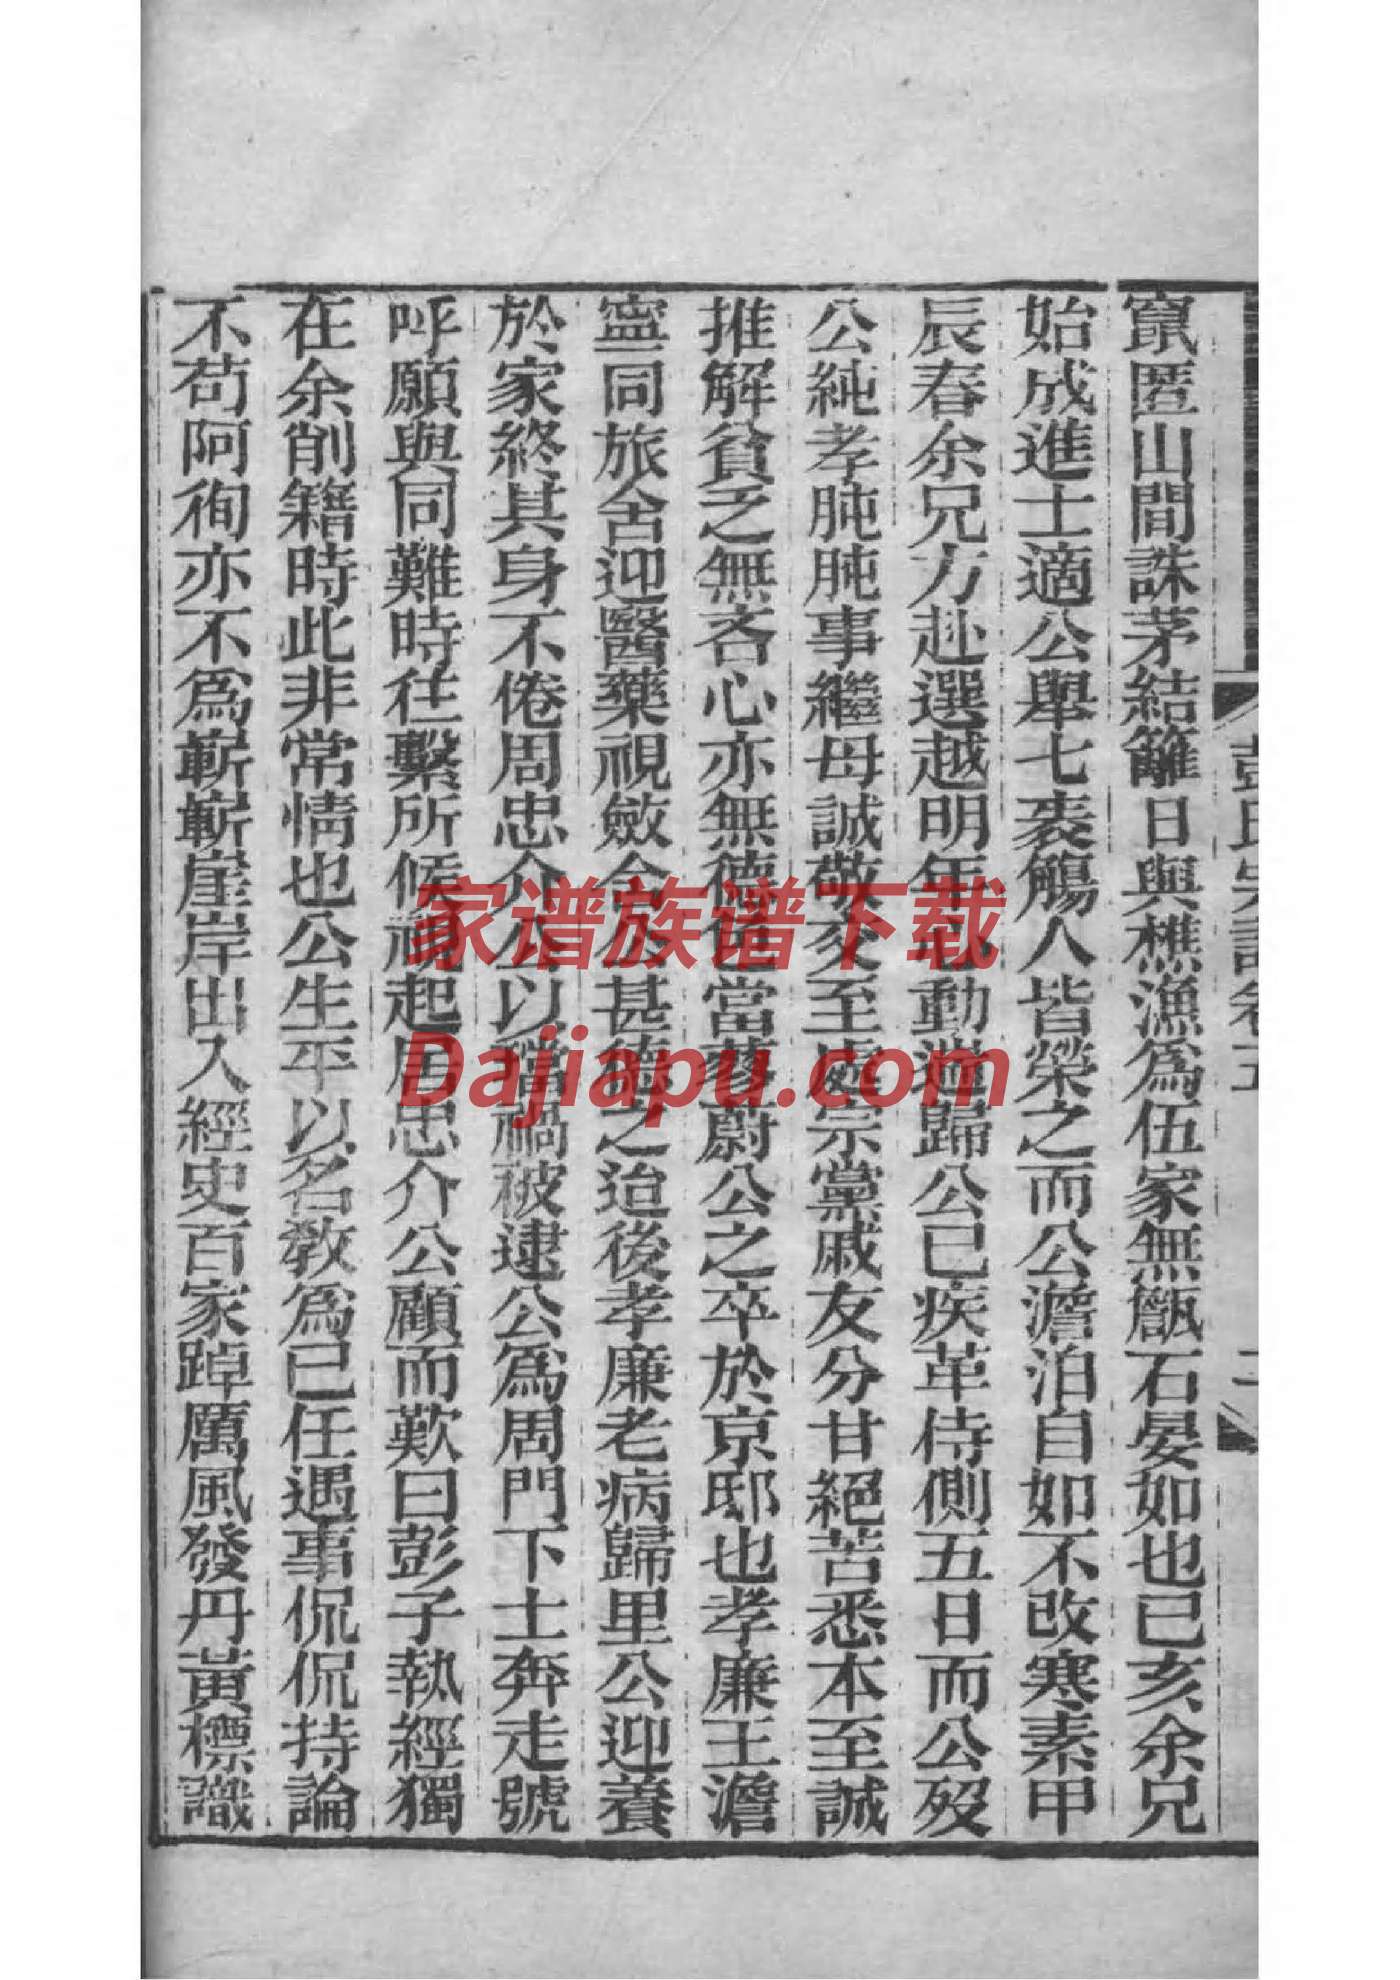 竄匿山間誅茅結籬日與樵漁爲伍家無甔石晏如也已亥余兄
始成進士適公舉七袠觴人皆榮之而公澹泊自如不改寒素甲
辰春余兄方赴選越明年心動遄歸公已疾革侍側五日而公歿
公純孝肫肫事繼母誠敬交至處宗黨戚友分甘絕苦悉本至誠
推解貧乏無吝心亦無德色當蓼蔚公之卒於京邸也孝廉王澹
寧同旅舍迎醫藥視斂含公甚德之迨後孝廉老病歸里公迎養
於家終其身不倦周忠介公以璫禍被逮公爲周門下士奔走號
呼願與同難時往繫所候視起居忠介公顧而歎曰彭子執經獨
在余削籍時此非常情也公生平以名教爲已任遇事侃侃持論
不苟阿徇亦不爲嶄嶄崖岸出入經史百家踔厲風發丹黃標識
彭氏宗譜卷五
家谱族谱下载
Dajiapu.com